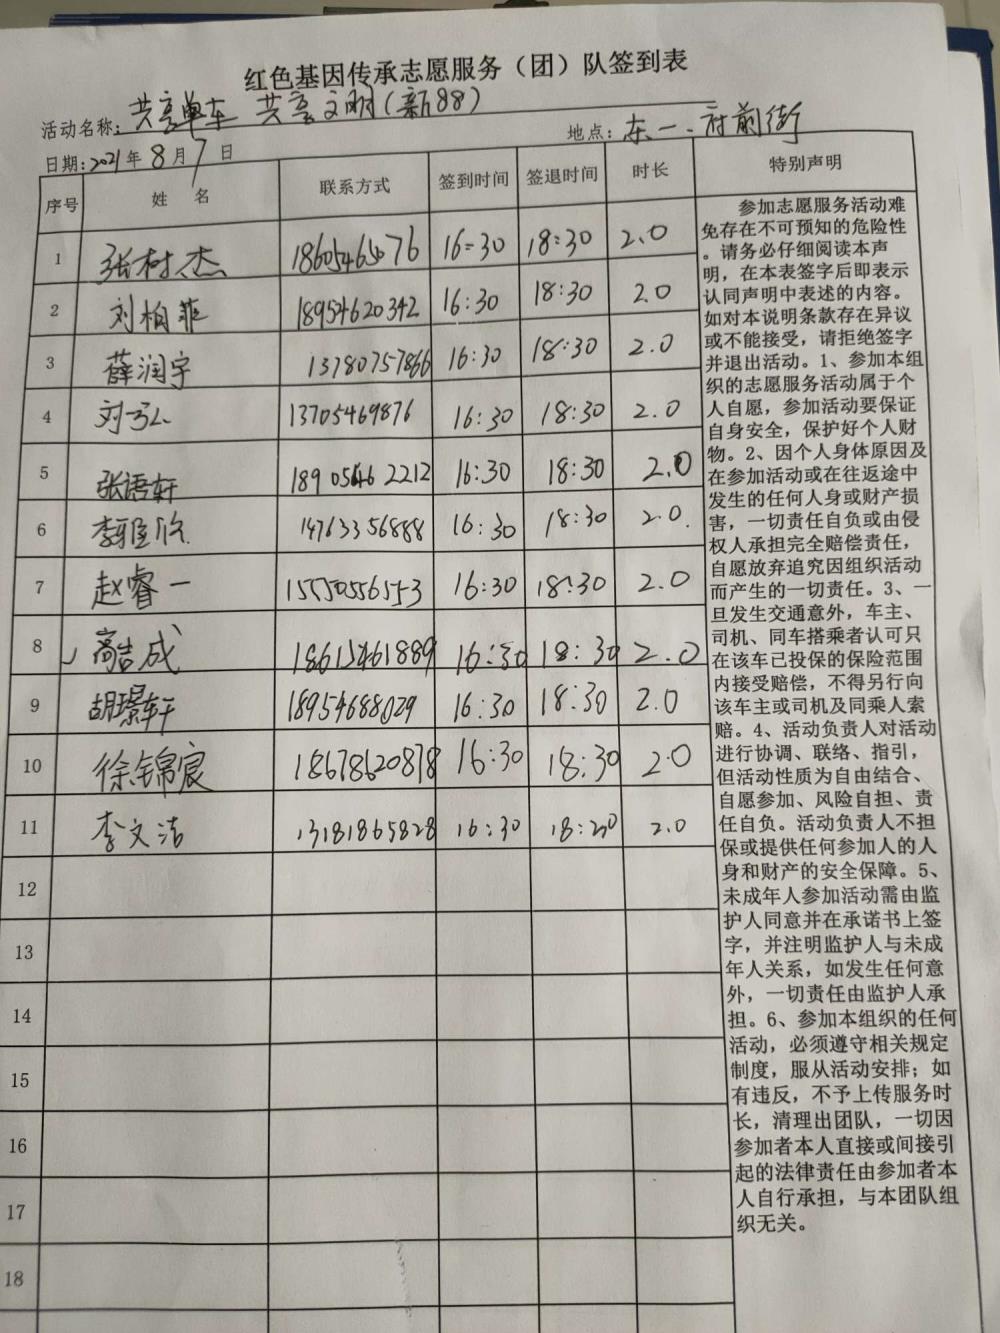 红色基因传承志愿服务（团）队签到表
活动名称：共享单车 共享文明（新88）
地点：东一、府前街
日期：2021年8月7日
序号 姓 名 联系方式 签到时间 签退时间 时长 特别声明
1 张树杰 18605465076 16:30 18:30 2.0
2 刘柏菲 18954620342 16:30 18:30 2.0
3 薛润宇 13780757866 16:30 18:30 2.0
4 刘弘 13705469876 16:30 18:30 2.0
5 张语轩 18905462212 16:30 18:30 2.0
6 李雅欣 14763356888 16:30 18:30 2.0.
7 赵睿一 15550556553 16:30 18:30 2.0
8 高吉成 18615461889 16:30 18:30 2.0
9 胡璟轩 18954688029 16:30 18:30 2.0
10 徐锦宸 18678620878 16:30 18:30 2.0
11 李文洁 13181865828 16:30 18:20 2.0
12
13
14
15
16
17
18
参加志愿服务活动难
免存在不可预知的危险性
。请务必仔细阅读本声
明，在本表签字后即表示
认同声明中表述的内容。
如对本说明条款存在异议
或不能接受，请拒绝签字
并退出活动。1、参加本组
织的志愿服务活动属于个
人自愿，参加活动要保证
自身安全，保护好个人财
物。2、因个人身体原因及
在参加活动或在往返途中
发生的任何人身或财产损
害，一切责任自负或由侵
权人承担完全赔偿责任，
自愿放弃追究因组织活动
而产生的一切责任。3、一
旦发生交通意外，车主、
司机、同车搭乘者认可只
在该车已投保的保险范围
内接受赔偿，不得另行向
该车主或司机及同乘人索
赔。4、活动负责人对活动
进行协调、联络、指引，
但活动性质为自由结合、
自愿参加、风险自担、责
任自负。活动负责人不担
保或提供任何参加人的人
身和财产的安全保障。5、
未成年人参加活动需由监
护人同意并在承诺书上签
字，并注明监护人与未成
年人关系，如发生任何意
外，一切责任由监护人承
担。6、参加本组织的任何
活动，必须遵守相关规定
制度，服从活动安排；如
有违反，不予上传服务时
长，清理出团队，一切因
参加者本人直接或间接引
起的法律责任由参加者本
人自行承担，与本团队组
织无关。